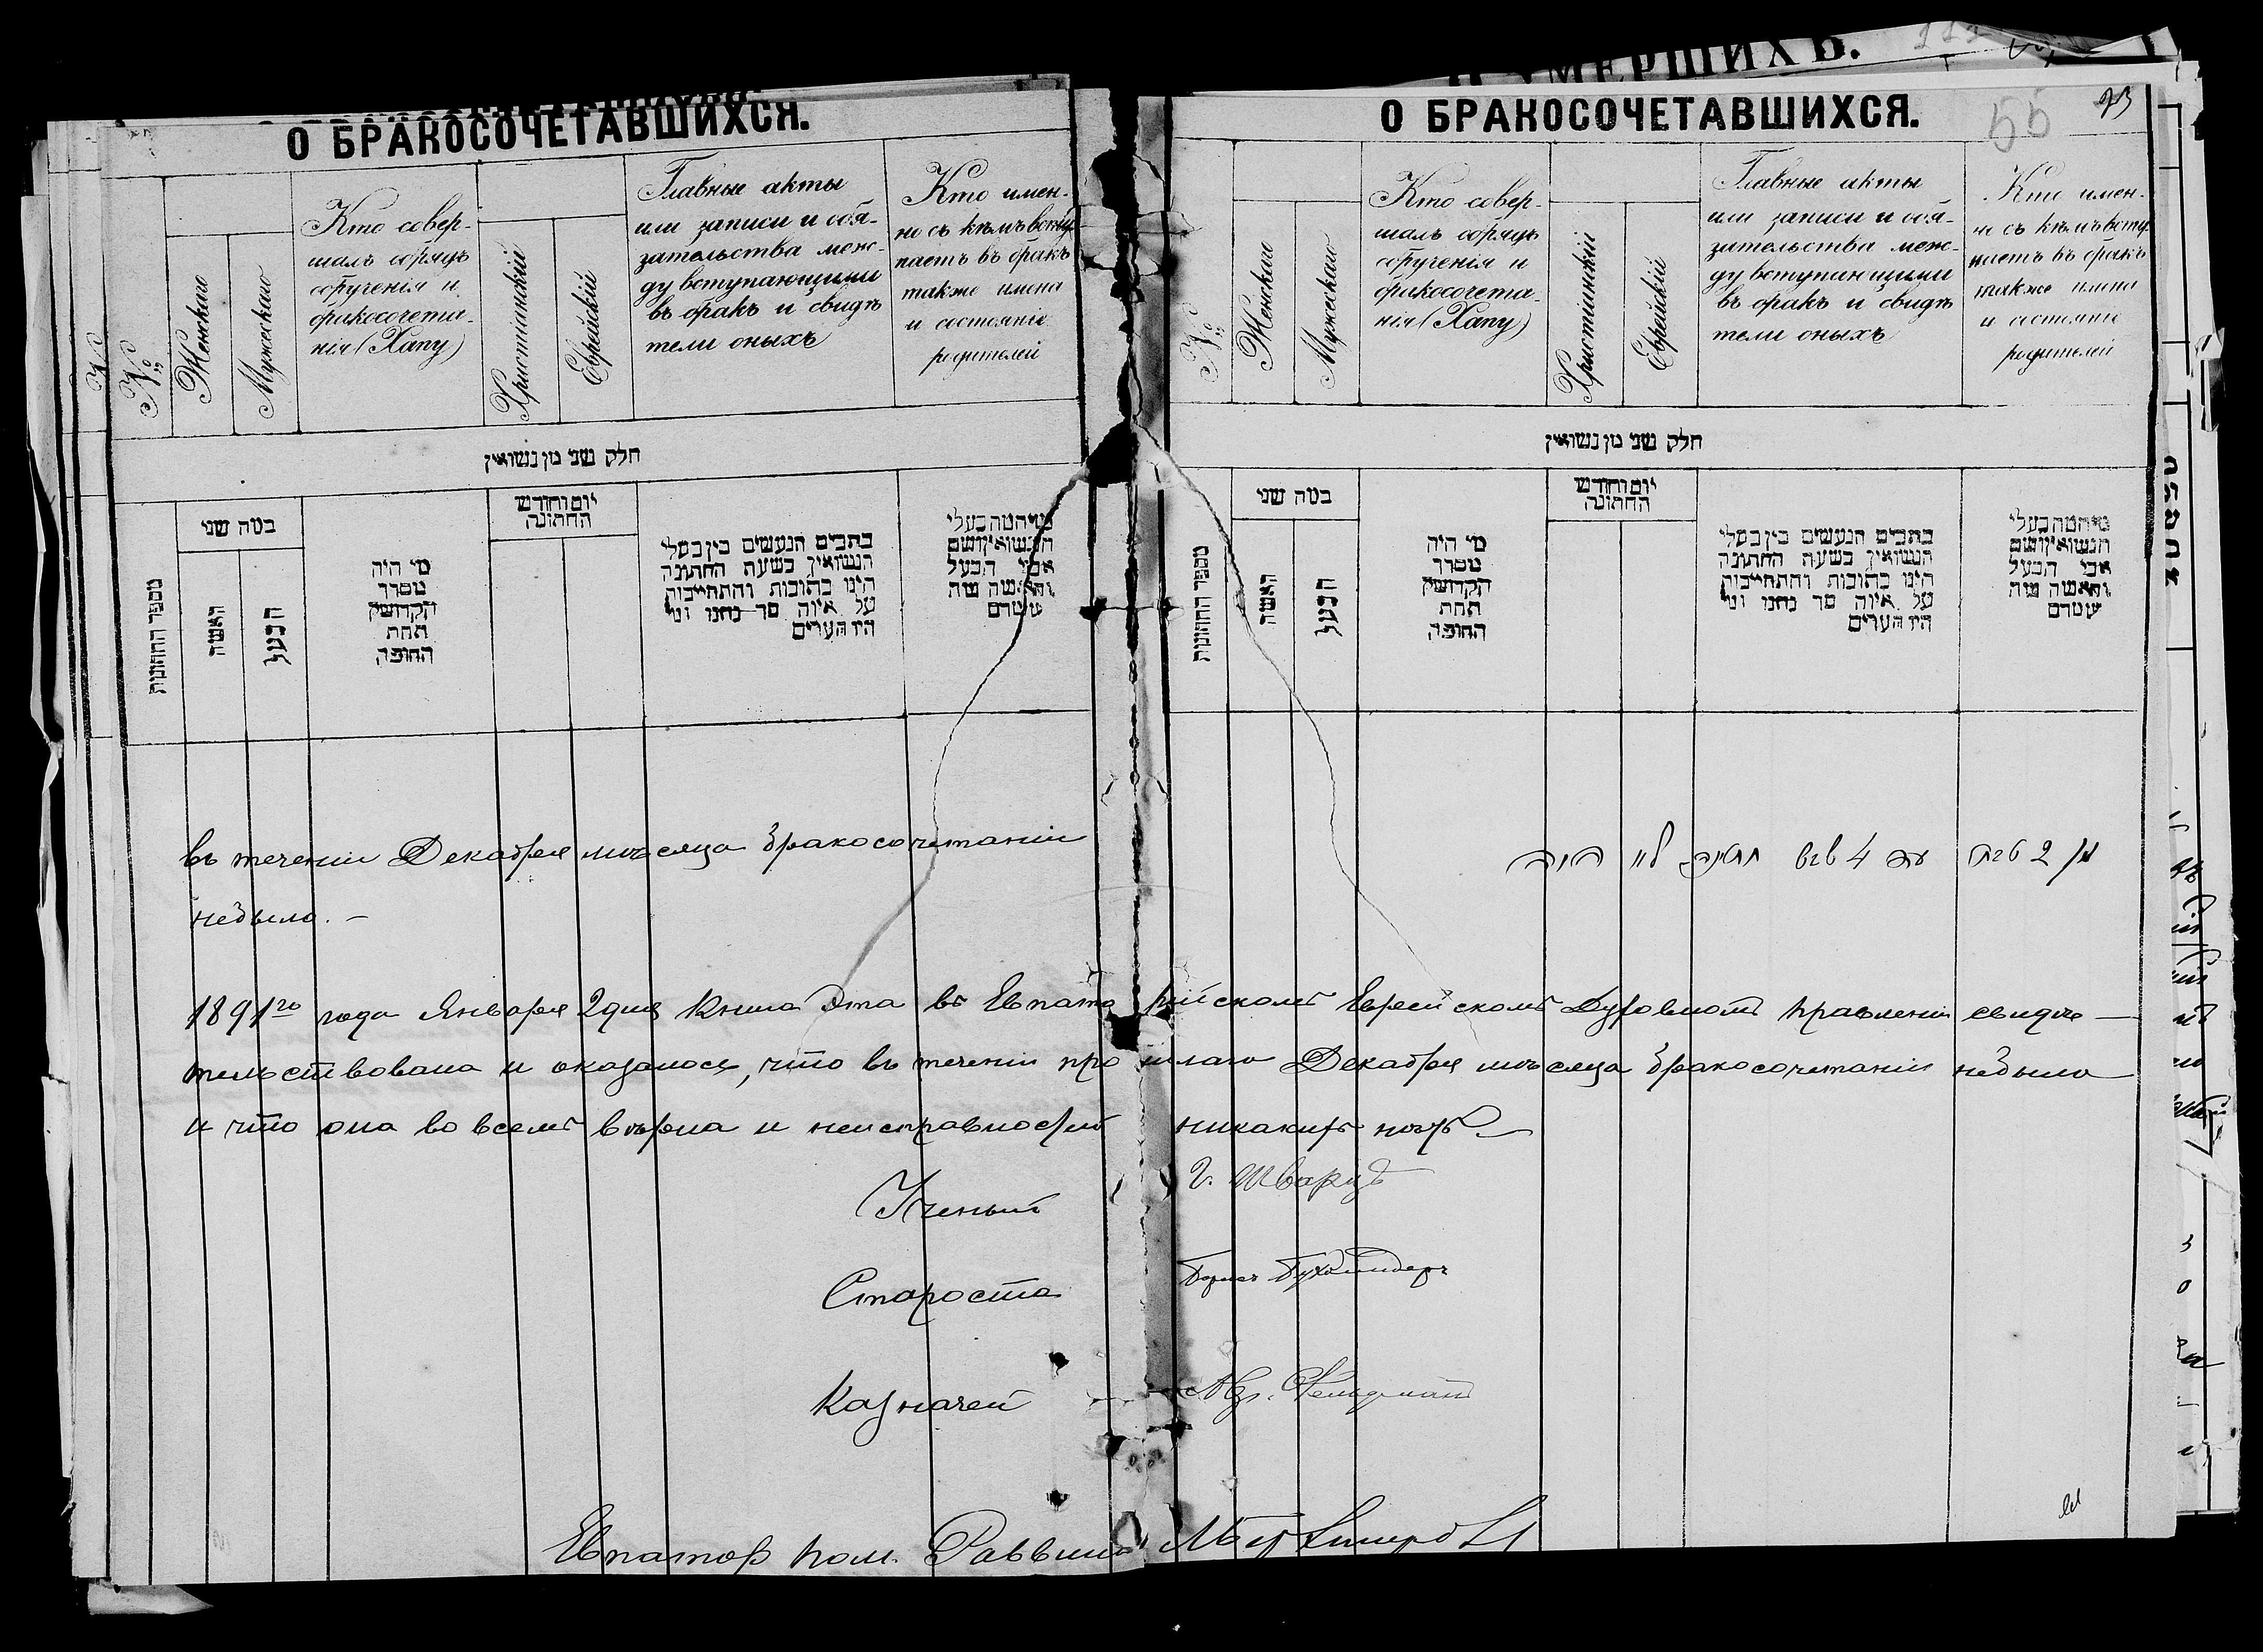 УМЕРШИХЪ.
О БРАКОСОЧЕТАВШИХСЯ.
№
Женскаго
Мужескаго
Кто совер-
шалъ обрядъ
обрученія и
бракосочета-
нія (Хапу)
Христіанскій
Еврейскій
Главные акты
или записи и обя-
зательства меж-
ду вступающими
въ бракъ и свидѣ
тели оныхъ
Кто имен-
но съ кѣмъ всту-
паетъ въ бракъ
также имена
и состояніе
родителей
חלק שני מן נשואין
מספר החתונות
כמה שני
האשה
הבעל
מי היה
מסדר
הקדושין
תחת
החופה
יום וחודש
החתונה
כתבים הנעשים בין בעלי
הנשואין בשעת החתונה
היינו כתובות והתחייבות
על איזה סך נתנו ומי
היו העדים
מי המה בעלי
הנשואין ושם
אבי הבעל
והאשה ומה
מעמדם
въ теченіи Декабря мѣсяца бракосочетаніи
небыло. —
О БРАКОСОЧЕТАВШИХСЯ.
55
№
Женскаго
Мужескаго
Кто совер-
шалъ обрядъ
обрученія и
бракосочета-
нія (Хапу)
Христіанскій
Еврейскій
Главные акты
или записи и обя-
зательства меж-
ду вступающими
въ бракъ и свидѣ
тели оныхъ
Кто имен-
но съ кѣмъ всту-
паетъ въ бракъ
также имена
и состояніе
родителей
חלק שני מן נשואין
מספר החתונות
כמה שני
האשה
הבעל
מי היה
מסדר
הקדושין
תחת
החופה
יום וחודש
החתונה
כתבים הנעשים בין בעלי
הנשואין בשעת החתונה
היינו כתובות והתחייבות
על איזה סך נתנו ומי
היו העדים
מי המה בעלי
הנשואין ושם
אבי הבעל
והאשה ומה
מעמדם
מן 2 טבת עד 4 שבט חתונה לא היה
1891го года Января 2 дня книга эта въ Евпаторійскомъ Еврейскомъ Духовномъ Правленіи свидѣ-
тельствована и оказалось, что въ теченіи прошлаго Декабря мѣсяца бракосочетаніи небыло
и что она во всемъ вѣрна и неисправностей никакихъ нѣтъ —
Ученый Г. Шварцъ
Староста Борисъ Бухбиндеръ
Казначей Абр. Фельдманъ
Евпатор пом. Раввина